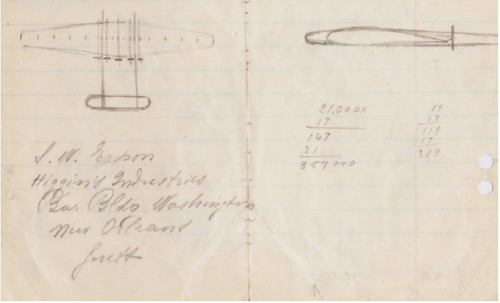 S. W. Eapon
Higgin's Industries
Bar Bldg Washington
New Orleans
21.000x
17
147
21
357.000
17
17
119
17
289